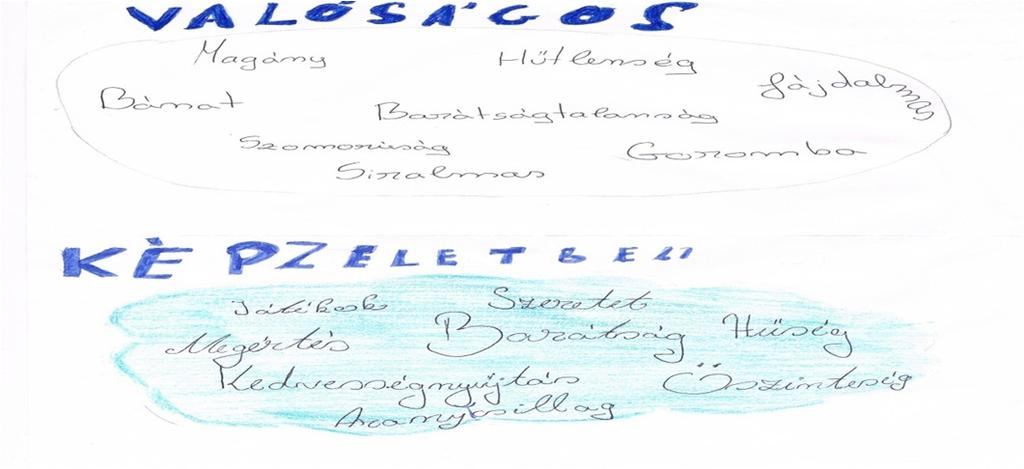 VALÓSÁGOS
Magány Hűtlenség
Bánat Barátságtalanság fájdalmas
Szomorúság Goromba
Siralmas
KÈPZELETBELI
Játékok Szeretet
Megértés Barátság Hűség
Kedvességnyújtás Őszinteség
Aranycsillag